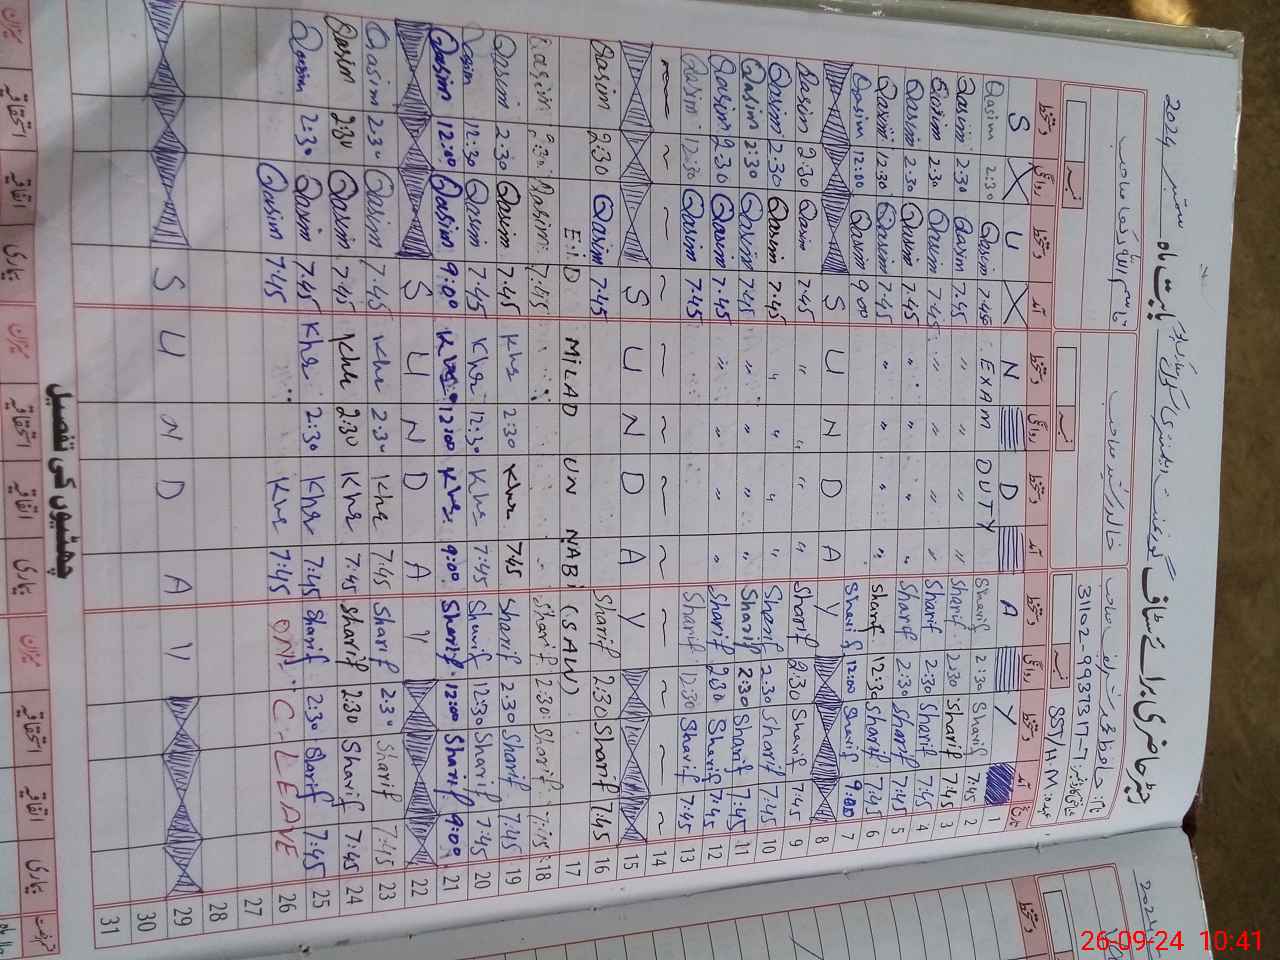 رجسٹر حاضری برائے سٹاف گورنمنٹ بابت ماہ ستمبر 2024
31102-9933717-7
SST/H.M
دستخط روانگی دستخط آمد دستخط روانگی دستخط آمد دستخط روانگی دستخط آمد تاریخ
S U N D A Y 1
Qasim 2:30 Qasim 7:45 EXAM DUTY Sharif 2:30 Sharif 7:45 2
Qasim 2:30 Qasim 7:45 " " " " Sharif 2:30 Sharif 7:45 3
Qasim 2:30 Qasim 7:45 " " " " Sharif 2:30 Sharif 7:45 4
Qasim 2:30 Qasim 7:45 " " " " Sharif 2:30 Sharif 7:45 5
Qasim 12:30 Qasim 7:45 " " " " Sharif 12:30 Sharif 7:45 6
Qasim 12:00 Qasim 9:00 Sharif 12:00 Sharif 9:00 7
S U N D A Y 8
Qasim 2:30 Qasim 7:45 " " " " Sharif 2:30 Sharif 7:45 9
Qasim 2:30 Qasim 7:45 " " " " Sharif 2:30 Sharif 7:45 10
Qasim 2:30 Qasim 7:45 " " " " Sharif 2:30 Sharif 7:45 11
Qasim 2:30 Qasim 7:45 " " " " Sharif 2:30 Sharif 7:45 12
Qasim 12:30 Qasim 7:45 Sharif 12:30 Sharif 7:45 13
~ ~ ~ ~ ~ ~ ~ ~ ~ ~ ~ ~ 14
S U N D A Y 15
Qasim 2:30 Qasim 7:45 Sharif 2:30 Sharif 7:45 16
E.i.D MiLAD UN NABi (S.A.W) 17
Qasim 2:30 Qasim 7:45 Sharif 2:30 Sharif 7:45 18
Qasim 2:30 Qasim 7:45 Khr 2:30 Khr 7:45 Sharif 2:30 Sharif 7:45 19
Qasim 12:30 Qasim 7:45 Khr 12:30 Khr 7:45 Sharif 12:30 Sharif 7:45 20
Qasim 12:00 Qasim 9:00 Khr 12:00 Khr 9:00 Sharif 12:00 Sharif 9:00 21
S U N D A Y 22
Qasim 2:30 Qasim 7:45 Khr 2:30 Khr 7:45 Sharif 2:30 Sharif 7:45 23
Qasim 2:30 Qasim 7:45 Khr 2:30 Khr 7:45 Sharif 2:30 Sharif 7:45 24
Qasim 2:30 Qasim 7:45 Khr 2:30 Khr 7:45 Sharif 2:30 Sharif 7:45 25
Qasim 7:45 Khr 7:45 ON C-LEAVE 26
27
28
S U N D A Y 29
30
31
چھٹیوں کی تفصیل
میزان استحقاقیہ اتفاقیہ بیماری میزان استحقاقیہ اتفاقیہ بیماری میزان استحقاقیہ اتفاقیہ بیماری
26-09-24 10:41